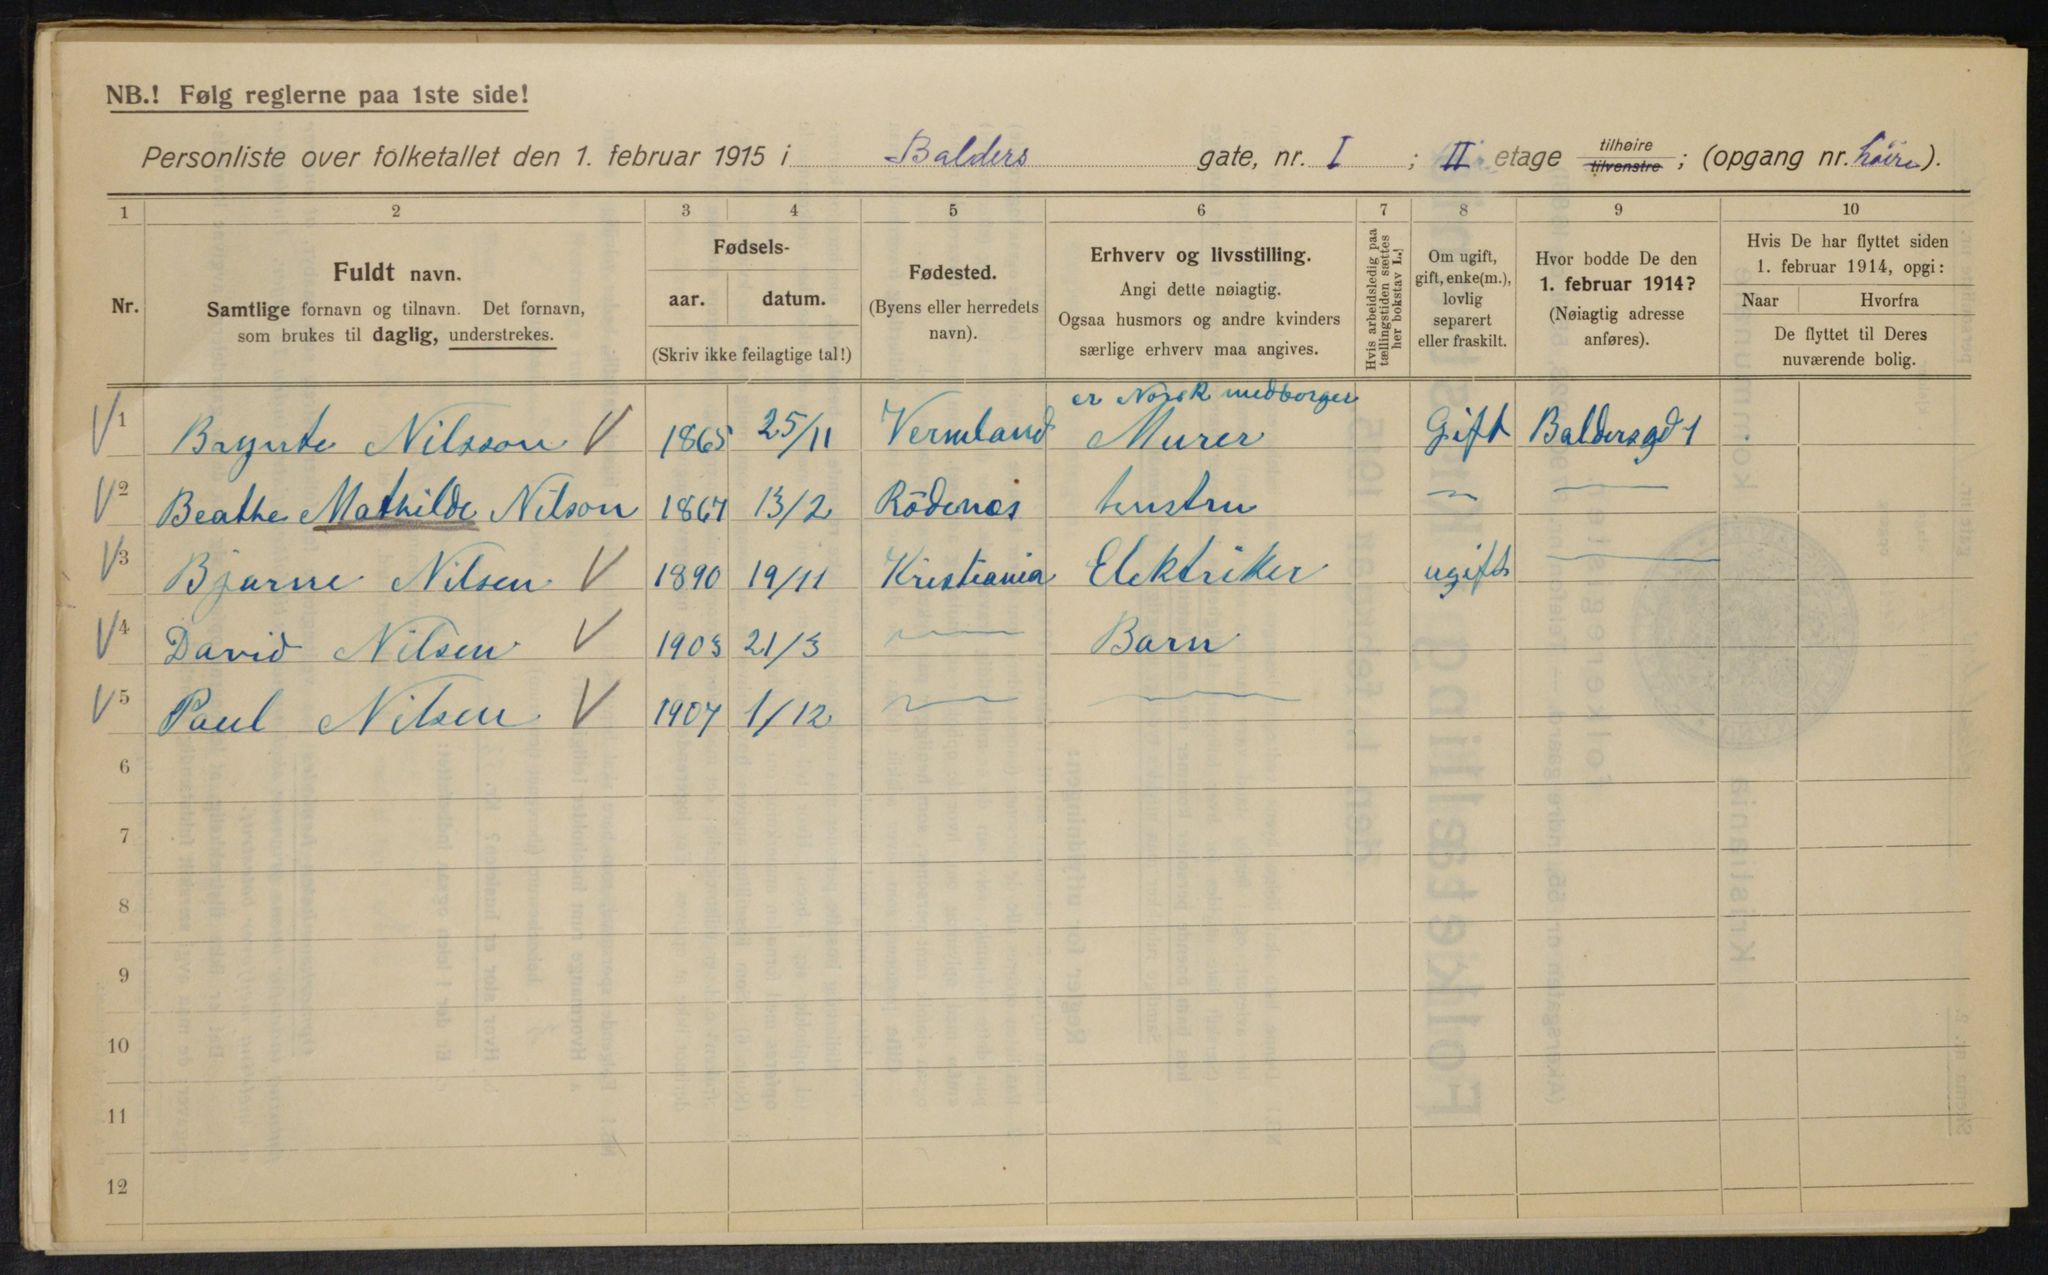 NB.! Følg reglerne paa 1ste side!
Personliste over folketallet den 1. februar 1915 i Balders gate, nr. I ; II etage tilhøire tilvenstre ; (opgang nr. höire).
1 2 3 4 5 6 7 8 9 10
Nr.
Fuldt navn.
Samtlige fornavn og tilnavn. Det fornavn,
som brukes til daglig, understrekes.
Fødsels-
aar. datum.
(Skriv ikke feilagtige tal!)
Fødested.
(Byens eller herredets
navn).
Erhverv og livsstilling.
Angi dette nøiagtig.
Ogsaa husmors og andre kvinders
særlige erhverv maa angives.
Hvis arbeidsledig paa
tællingstiden sættes
her bokstav L.!
Om ugift,
gift, enke(m.),
lovlig
separert
eller fraskilt.
Hvor bodde De den
1. februar 1914?
(Nøiagtig adresse
anføres).
Hvis De har flyttet siden
1. februar 1914, opgi:
Naar Hvorfra
De flyttet til Deres
nuværende bolig.
er Norsk medborger
1 Brynte Nilsson V 1865 25/11 Vermland Murer Gift Baldersgd 1
2 Beathe Mathilde Nilson 1867 13/2 Rödenæs hustru — —
3 Bjarne Nilsen V 1890 19/11 Kristiania Elektriker ugift —
4 David Nilsen V 1903 21/3 — Barn
5 Paul Nilsen V 1907 1/12 — —
6
7
8
9
10
11
12